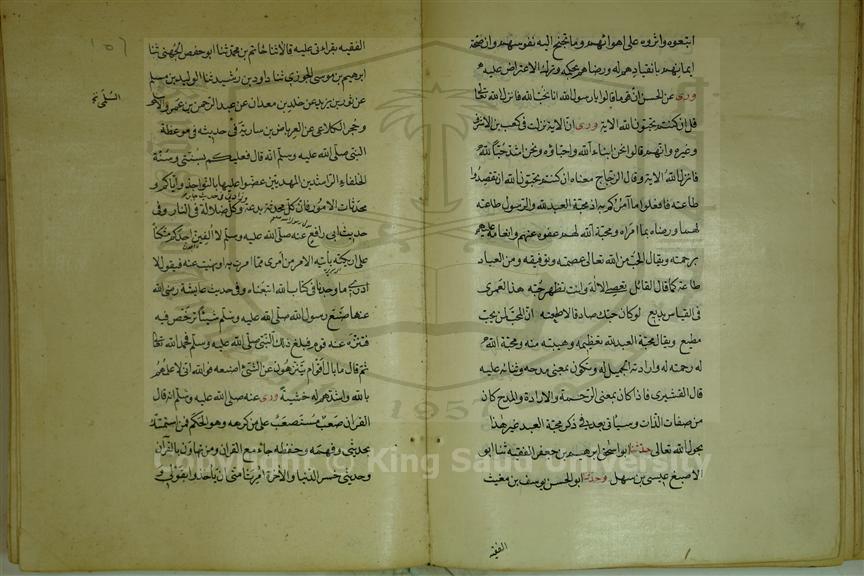 اتبعوه واثروه على اهوائهم وما تجنح اليه نفوسهم وان صحة
ايمانهم بانقيادهم له ورضاهم بحكمه وترك الاعتراض عليه
وروى عن الحسن ان اقواما قالوا يا رسول الله انا نحب الله فانزل الله تعالى
قل ان كنتم تحبون الله الاية وروى ان الاية نزلت فى كعب بن الاشرف
وغيره وانهم قالوا نحن ابناء الله واحباؤه ونحن اشد حبا لله
فانزل الله الاية وقال الزجاج معناه ان كنتم تحبون الله ان تقصدوا
طاعته فافعلوا ما امركم به اذ محبة العبد لله والرسول طاعته
لهما ورضاه بما امرا به ومحبة الله لهم عفوه عنهم وانعامه عليهم
برحمته ويقال الحب من الله تعالى عصمته وتوفيقه ومن العباد
طاعة كما قال القائل تعصى الاله وانت تظهر حبه هذا لعمرى
فى القياس بديع لو كان حبك صادقا لاطعته ان المحب لمن يحب
مطيع ويقال محبة العبد لله تعظيمه وهيبته منه ومحبة الله
له رحمته له وارادته الجميل له وتكون بمعنى مدحه وثنائه عليه
قال القشيرى فاذا كان بمعنى الرحمة والارادة والمدح كان
من صفات الذات وسياتى بعد فى ذكر محبة العبد غير هذا
بحول الله تعالى حدثنا ابو اسحق ابرهيم بن جعفر الفقيه ثنا ابو
الاصبغ عيسى بن سهل وحدثنا ابو الحسن يوسف بن مغيث
الفقيه
الفقيه بقراءتى عليه قالا ثنا حاتم بن محمد ثنا ابو حفص الجهنى ثنا
ابرهيم بن موسى الجوزى ثنا داود بن رشيد ثنا الوليد بن مسلم
عن ثور بن يزيد عن خلد بن معدان عن عبد الرحمن بن عمرو
السلمى
وحجر الكلاعى عن العرباض بن سارية فى حديثه فى موعظة
النبى صلى الله عليه وسلم انه قال فعليكم بسنتى وسنة
الخلفاء الراشدين المهديين عضوا عليها بالنواجذ واياكم و
محدثات الامور فان كل محدثة بدعة وكل ضلالة فى النار وفى
حديث ابى رافع عنه صلى الله عليه وسلم لا الفين احدكم متكئا
على اريكته ياتيه الامر من امرى مما امرت به او نهيت عنه فيقول لا
ادرى ما وجدنا فى كتاب الله اتبعناه وفى حديث عايشة رضى الله
عنها صنع رسول الله صلى الله عليه وسلم شيئا ترخص فيه
فتنزه عنه قوم فبلغ ذلك النبى صلى الله عليه وسلم فحمد الله تعالى
ثم قال ما بال اقوام يتنزهون عن الشئ اصنعه فو الله انى لاعلمهم
بالله واشدهم له خشية وروى عنه صلى الله عليه وسلم انه قال
القران صعب مستصعب على من كرهه وهو الحكم فمن استمسك
بحديثى وفهمه وحفظه جاء مع القران ومن تهاون بالقران
وحديثى خسر الدنيا والاخرة امرت امتى ان ياخذوا بقولى و
1957
© King Saud University